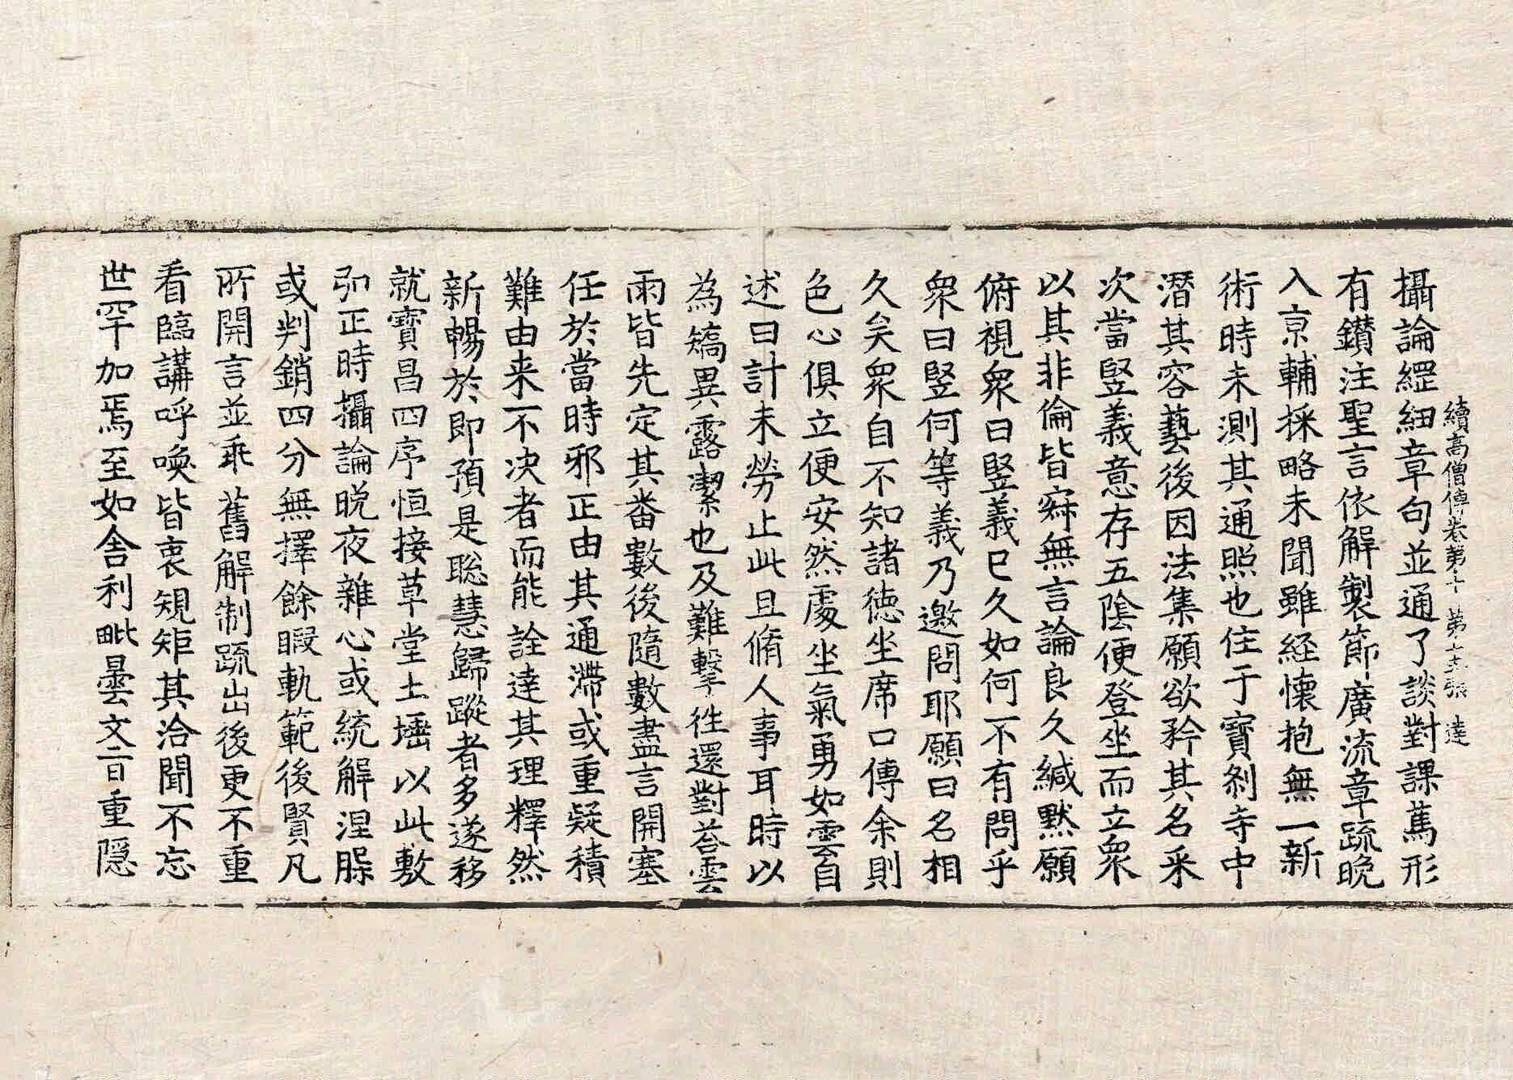 續高僧傳卷第十 第十五張 達
攝論纙紐章句並通了談對課薦形
有鑽注聖言依解製節廣流章疏晚
入京輔採略未聞雖經懷抱無一新
術時未測其通照也住于寶剎寺中
潛其容藝後因法集願欲矜其名采
次當竪義意存五陰便登坐而立衆
以其非倫皆寂無言論良久緘默願
俯視衆曰竪義已久如何不有問乎
衆曰竪何等義乃邀問耶願曰名相
久矣衆自不知諸德坐席口傳余則
色心俱立便安然處坐氣勇如雲自
述曰計未勞止此且脩人事耳時以
為矯異露潔也及難擊往還對荅雲
雨皆先定其番數後隨數盡言開塞
任於當時邪正由其通滯或重疑積
難由来不决者而能詮達其理釋然
新暢於即預是聡慧歸蹤者多遂移
就寶昌四序恒接草堂土㙮以此敷
弘正時攝論晚夜雜心或統解涅槃
或判銷四分無擇餘暇軌範後賢凡
所開言並乖舊解制䟽出後更不重
看臨講呼喚皆衷規矩其洽聞不忘
世罕加焉至如舍利毗曇文旨重隱